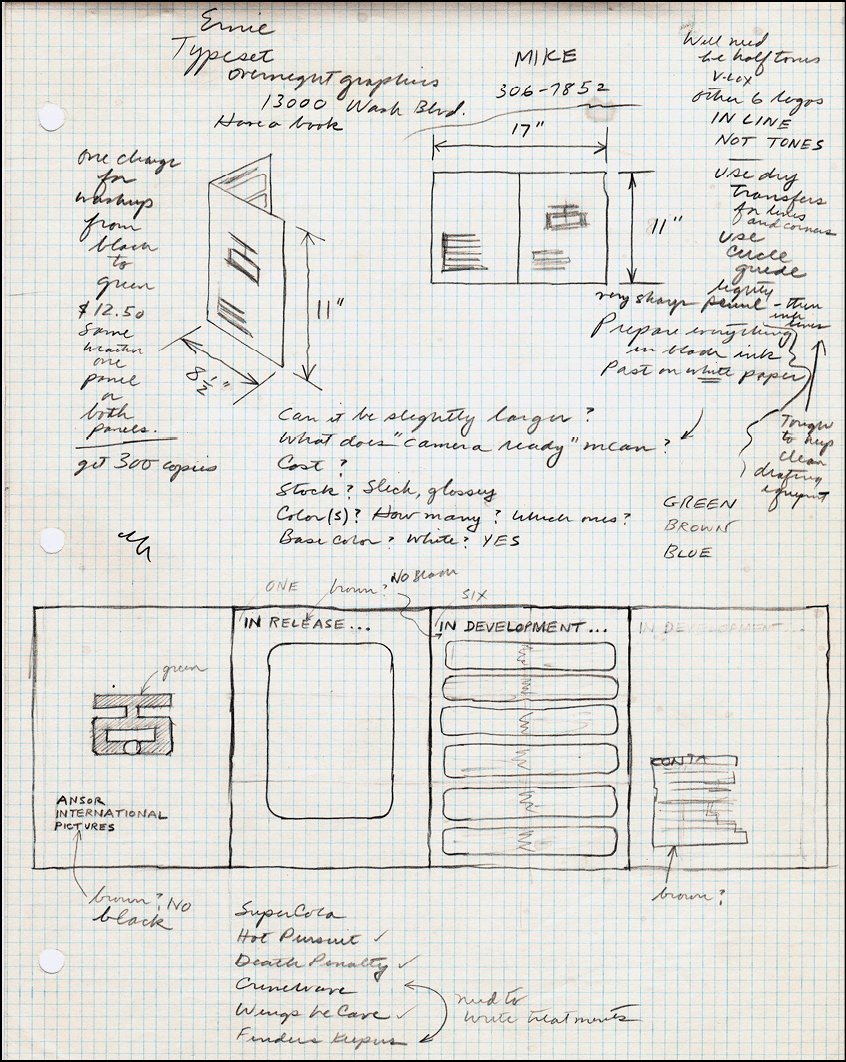 Ernie
Typeset
overnight graphics
13000 Wash Blvd.
Have a book
MIKE
306-7852
Will need
be half tones
V-lox
other 6 logos
IN LINE
NOT TONES
use dry
transfers
for lines
and corners
use
circle
guide
lightly
very sharp pencil - then
ink
lines
Prepare everything
in black ink
Past on white paper
Tough
to keep
clean
drafting
equipmt
one charge
for
washup
from
black
to
green
$12.50
same
whether
one
panel
or
both
panels.
get 300 copies
11"
8½"
17"
11"
Can it be slightly larger?
What does "camera ready" mean?
Cost?
Stock? Slick, glossey
Color(s)? How many? Which ones?
Base color? White? YES
GREEN
BROWN
BLUE
ONE
brown?
NO
SIX
IN RELEASE...
IN DEVELOPMENT...
IN DEVELOPMENT...
green
ANSOR
INTERNATIONAL
PICTURES
CONTA
brown? NO
black
brown?
SuperCola
Hot Pursuit ✓
Death Penalty ✓
Crimewave
Wings be Cave ✓
Finders Keepers
need to
write treatments